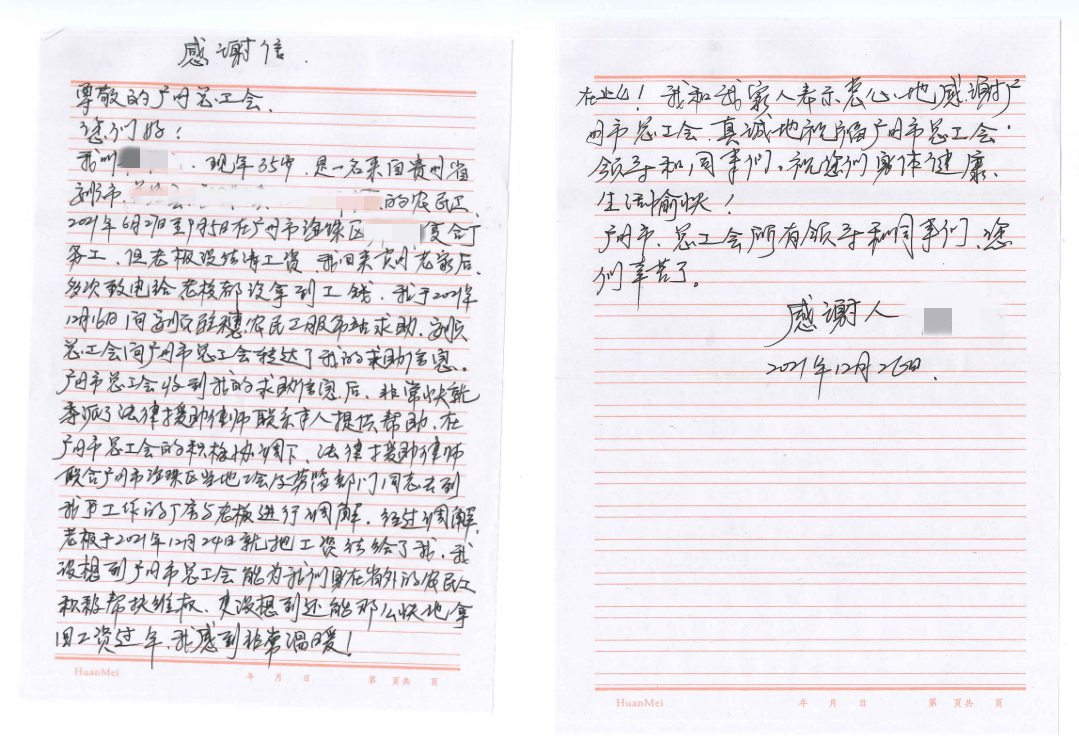 感谢信.
尊敬的广州总工会.
您们好!
我叫 . 现年35岁, 是一名来自贵州省
市. 的农民工.
2021年6月2日至9月5日在广州市海珠区 复合厂
务工, 但老板没结清工资, 我回来贵州老家后,
多次致电给老板都没拿到工钱. 我于2021年
12月16日向 驻穗农民工服务站求助.
总工会向广州市总工会转达了我的求助信息。
广州市总工会收到我的求助信息后, 非常快就
委派了法律援助律师联系本人提供帮助. 在
广州市总工会的积极协调下, 法律援助律师
联合广州市海珠区当地工会及劳监部门同志去到
我 工作的厂房与老板进行调解. 经过调解,
老板于2021年12月24日就把工资结给了我. 我
没想到广州市总工会能为我们身在省外的农民工
积极帮扶维权. 更没想到还能那么快地拿
回工资过年. 我感到非常温暖!
HuanMei
年 月 日
第 页共 页
在此 ! 我和我家人表示衷心地感谢广
州市总工会. 真诚地祝福广州市总工会.
领导和同事们. 祝您们身体健康.
生活愉快!
广州市. 总工会所有领导和同事们, 您
们辛苦了。
感谢人
2021年12月26日.
HuanMei
年 月 日
第 页共 页